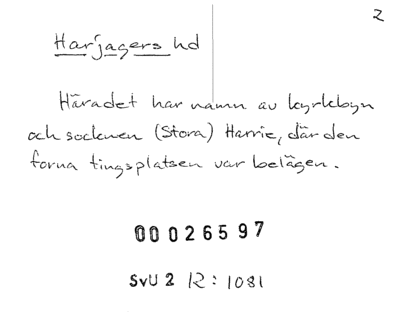 2
Harjagers hd
Häradet har namn av kyrkbyn
och socknen (Stora) Harrie, där den
forna tingsplatsen var belägen.
00026597
SvU 2 R: 1081